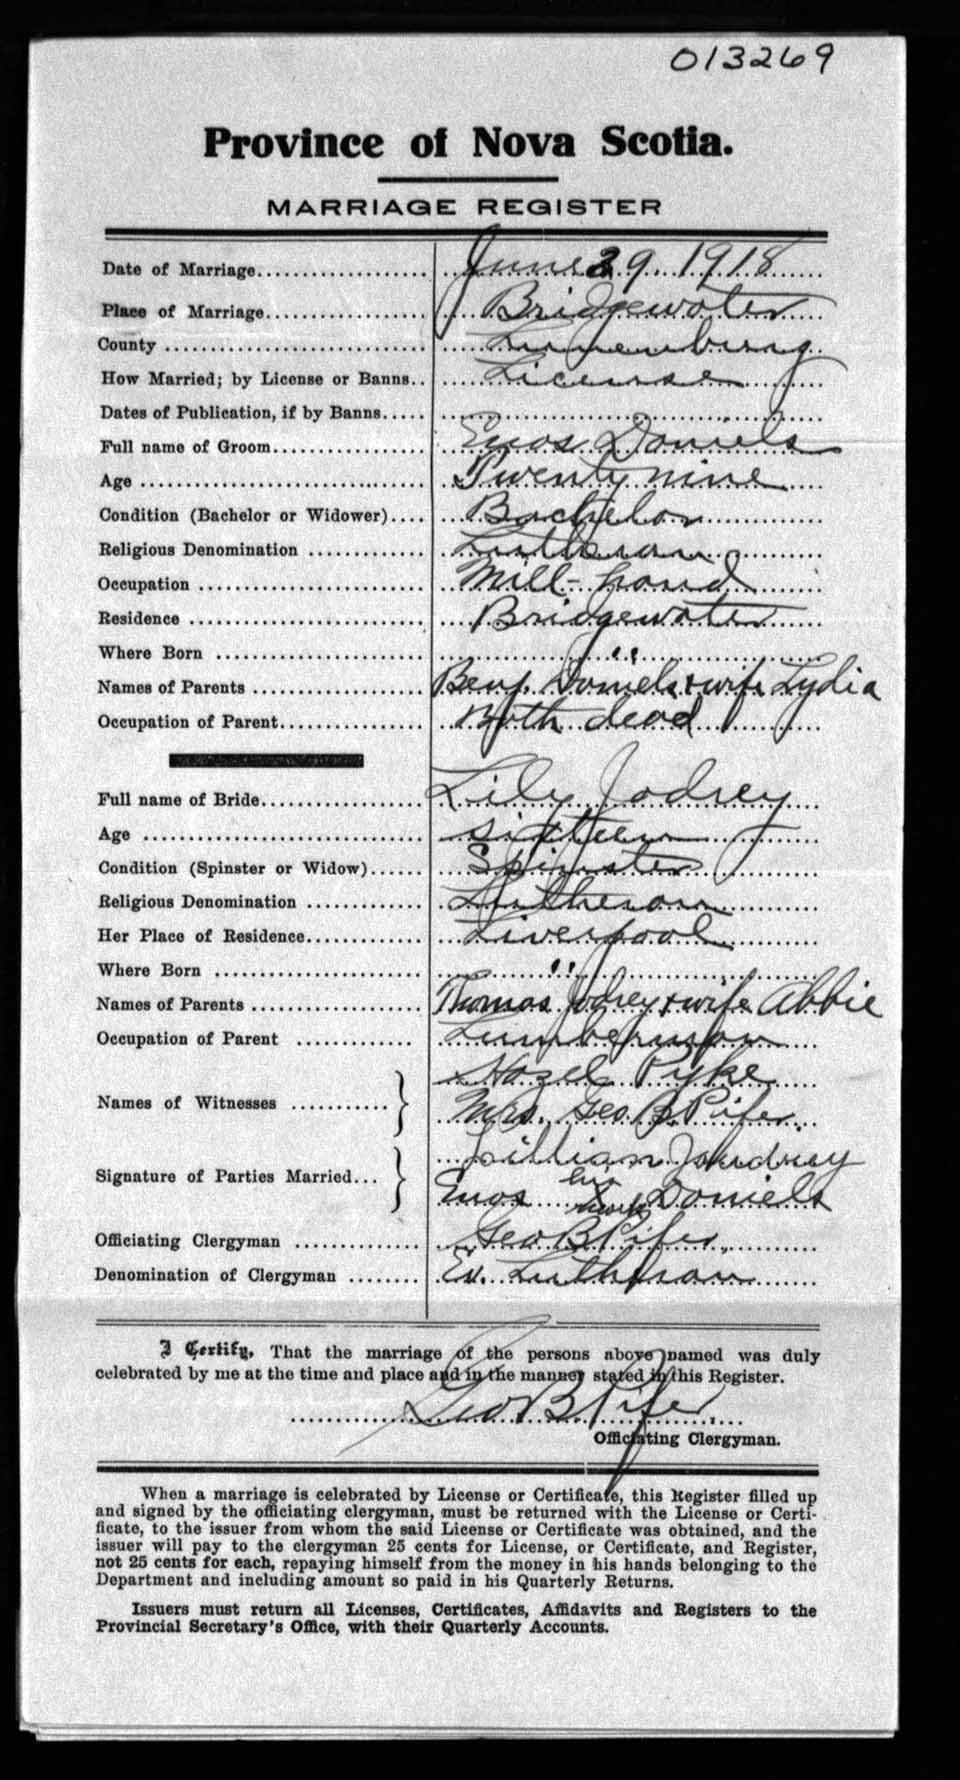 013269
Province of Nova Scotia.
MARRIAGE REGISTER
Date of Marriage.................... June 29 1918
Place of Marriage................... Bridgewater
County .............................. Lunenburg
How Married; by License or Banns.. License
Dates of Publication, if by Banns.....
Full name of Groom.................. Enos Daniels
Age .............................. Twenty nine
Condition (Bachelor or Widower).... Bachelor
Religious Denomination ............. Lutheran
Occupation .......................... Mill-hand
Residence ........................... Bridgewater
Where Born ......................... "
Names of Parents .................... Benj. Daniels & wife Lydia
Occupation of Parent................. Both dead
Full name of Bride................... Lily Jodrey
Age ................................ sixteen
Condition (Spinster or Widow)...... Spinster
Religious Denomination ............. Lutheran
Her Place of Residence............. Liverpool
Where Born ......................... "
Names of Parents .................... Thomas Jodrey & wife Abbie
Occupation of Parent ............. Lumberman
Hazel Pyke
Names of Witnesses ........... } Mrs. Geo B. Pifer.
Lillian Joudrey
Signature of Parties Married... } Enos his X mark Daniels
Officiating Clergyman .............. Geo B Pifer
Denomination of Clergyman ........ Ev. Lutheran
I Certify, That the marriage of the persons above named was duly
celebrated by me at the time and place and in the manner stated in this Register.
Geo B Pifer
Officiating Clergyman.
When a marriage is celebrated by License or Certificate, this Register filled up
and signed by the officiating clergyman, must be returned with the License or Certi-
ficate, to the issuer from whom the said License or Certificate was obtained, and the
issuer will pay to the clergyman 25 cents for License, or Certificate, and Register,
not 25 cents for each, repaying himself from the money in his hands belonging to the
Department and including amount so paid in his Quarterly Returns.
Issuers must return all Licenses, Certificates, Affidavits and Registers to the
Provincial Secretary's Office, with their Quarterly Accounts.